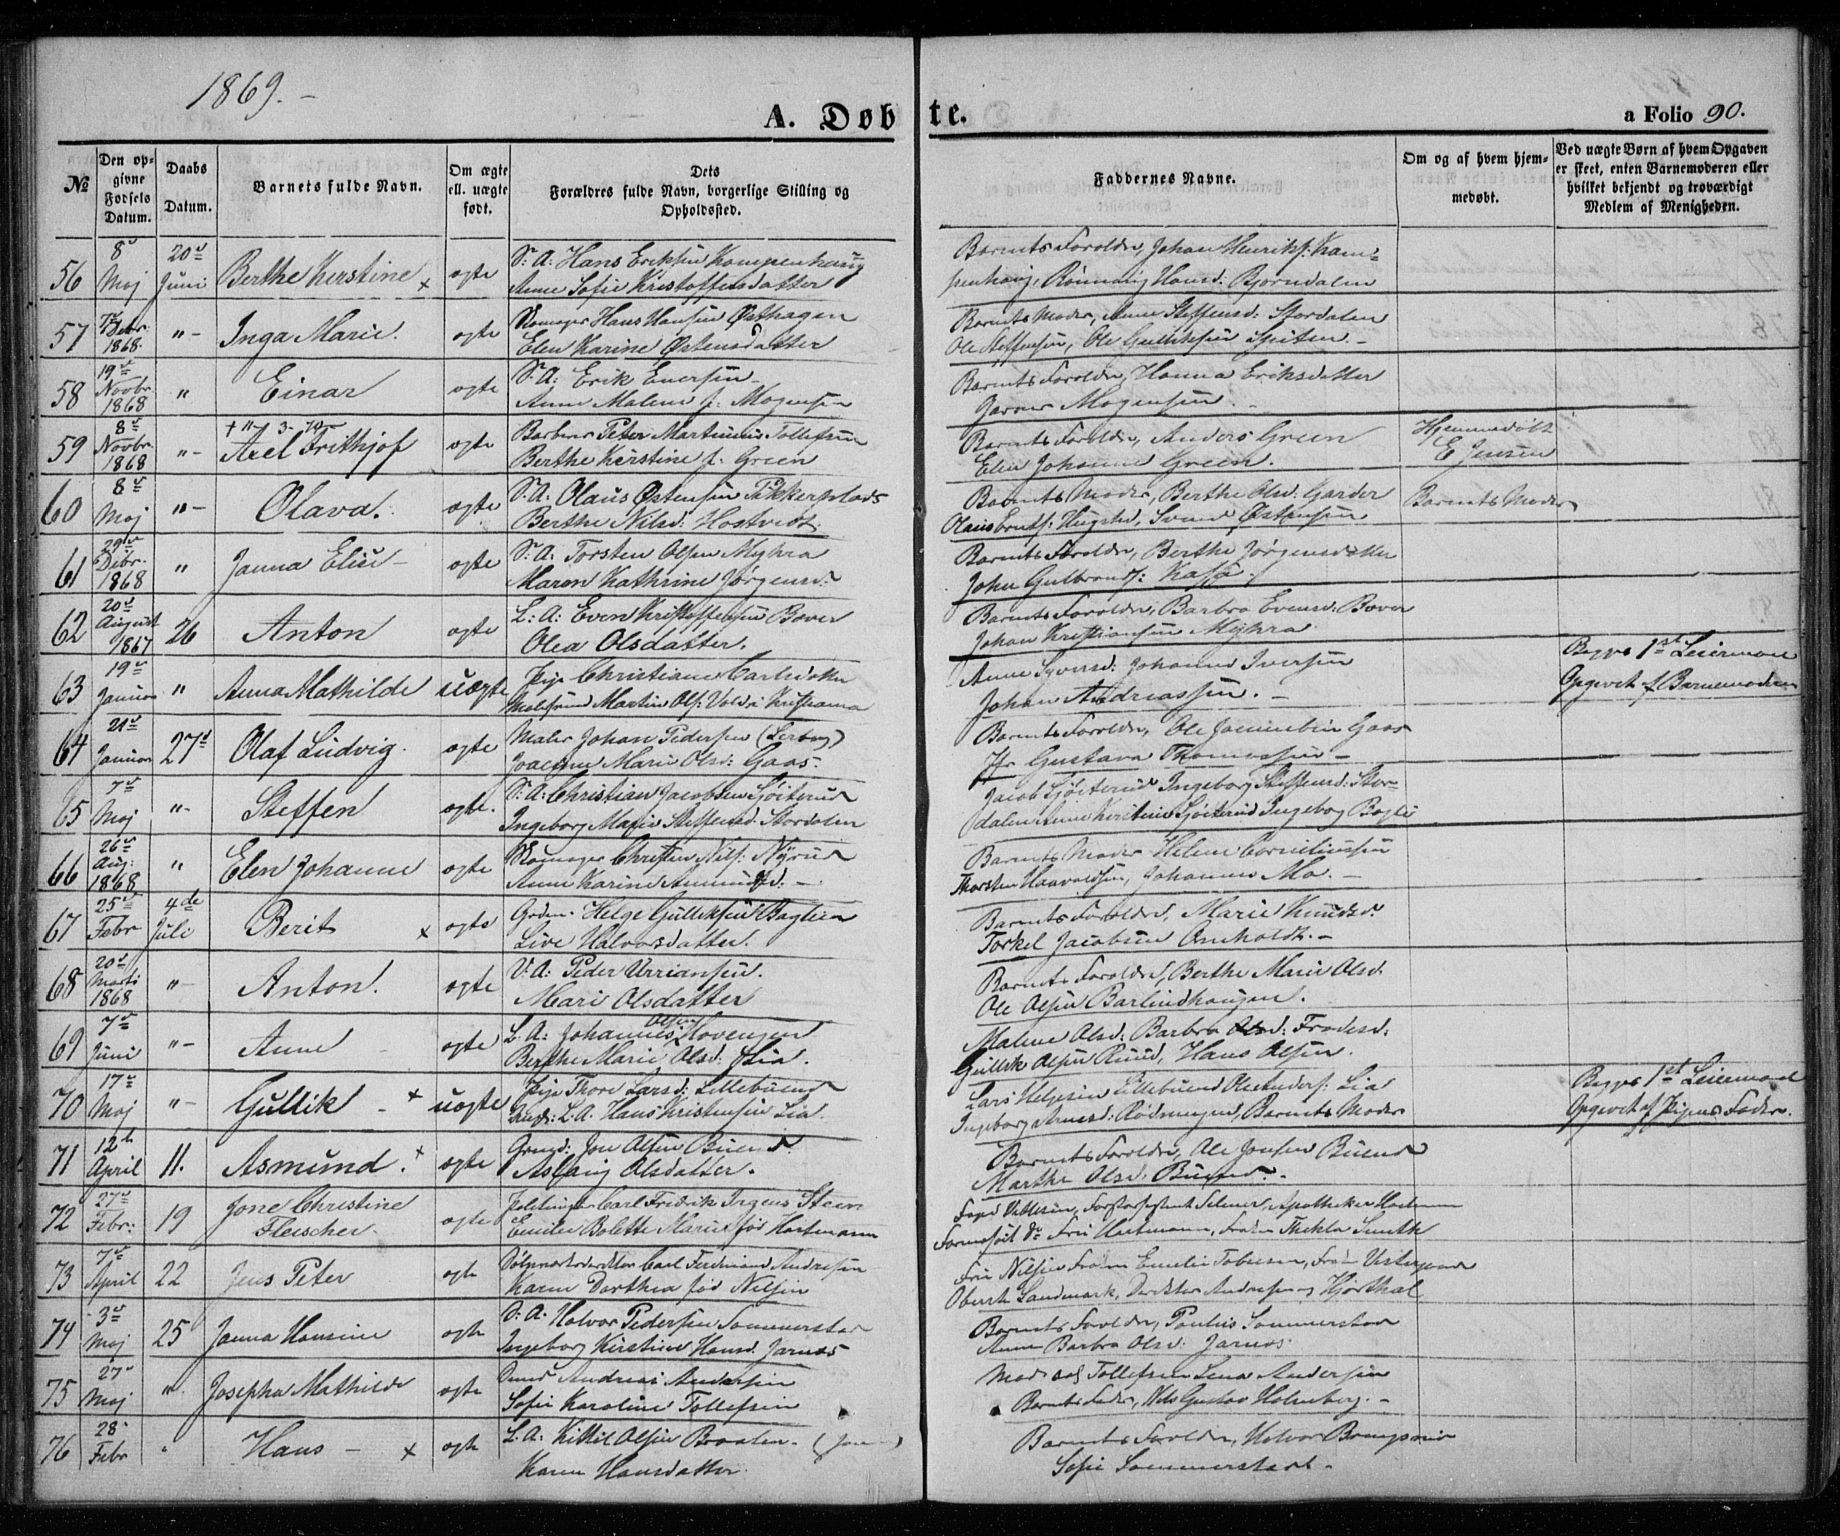 1869.-
A. Døbte.
a Folio 90.
№
Den opgivne Fødsels Datum.
Daabs Datum.
Barnets fulde Navn.
Om ægte ell. uægte født.
Dets Forældres fulde Navn, borgerlige Stilling og Opholdssted.
Faddernes Navne.
Om og af hvem hjemmedøbt.
Ved uægte Børn af hvem Opgaven er skeet, enten Barnemoderen eller hvilket bekjendt og troværdigt Medlem af Menigheden.
56 8 Maj 20 Juni Berthe Kirstine x ægte S. A: Hans Eriksen Kampenhaug
Anne Sofie Kristoffersdatter
Barnets Forældre, Johan Henriks. Kam-
penhaug, Rønnaug Hansd: Bjørndalen
57 Debr. 1868. "- Inga Marie. ægte Skomager Hans Hansen Østhagen
Elen Karine Østensdatter
Barnets Moder, Anne Steffensd: Stordalen
Ole Steffensen, Ole Gulliksen Spiten-
58 19 Novbr. 1868 " Einar ægte S: A: Erik Enersen
Anne Malene f. Mogensen
Barnets Forældre, Hanna Eriksdatter
Mogensen.
59 8 Novbr. 1868 "- Axel Frithjof ægte Barberer Peter Martinius Tollefsen
Berthe Kirstine f. Green
Barnets Forældre, Anders Green
Elen Johanne Green.
Hjemmedøbt
E Jensen
60 8 Maj "- Olava. ægte S. A: Olaus Østensen Pukkerplads
Berthe Nilsd: Hostvedt
Barnets Moder, Berthe Olsd: Garder
Svend Østensen
Barnets Moder
61 29 Debr. 1868 " Janna Elise- ægte S: A: Torsten Olsen Myhra
Maren Kathrine Jørgensd:
Barnets Forældre, Berthe Jørgensdatter
John Gulbrands:
62 20 August 1867 26 Anton ægte L: A: Even Kristoffersen Bæver
Olea Olsdatter.
Barnets Forældre, Barbro Evensd: Bæver
Johan Kristiansen Myhra
63 19 Januar " Anna Mathilde uægte Pige Christiane Carlsdatter
Martin Ols: Vold i Kristiania
Anne Syversd: Johanne Iversen
Johan Andreassen.-
Begges 1st Leiermaal
Opgivet af Barnemoderen
64 21 Januar 27d Olaf Ludvig. ægte Maler Johan Pedersen (Lerberg)
Marie Olsd: Gaas.
Barnets Forældre, Ole Gaas
Jfr Gustava Thomassen-
65 7 Maj "- Steffen ægte. S: A: Christian Jacobsen Sjøiterud
Ingeborg Marie Steffensd: Stordalen
Jacob Sjøiterud Ingeborg Steffensd: Stor-
dalen Anne Kirstine Sjøiterud Ingeborg Bøgli
66 26 Aug: 1868 " Elen Johanne ægte Skomager Christen Nils: Nyrud
Anne Karine Amundsd.-
Barnets Moder Helene Corneliussen
Thorsten Haavaldsen, Johannes Mo.-
67 25 Febr 4de Juli Berit x ægte Grdm. Helge Gulliksen Bøglien
Live Halvorsdatter.
Barnets Forældre, Marie Knudsd.
Torkel Jacobsen Omholdt.-
68 20 Marts 1868 "- Anton. ægte S. A: Peder Urriansen.
Mari Olsdatter
Barnets Forældre, Berthe Marie Olsd.
Ole Olsen Barlindhaugen.
69 7 Juni "- Anne ægte L. A: Johannes Olsen Hovengen
Berthe Marie Olsd: Lia.
Malene Olsd: Barbro Frodesd:
Gullik Olsen Ruud, Hans Olsen.
70 17 Maj "- Gullik -x uægte Pige Thore Larsd: Lillebuend
Ungk: L. A. Hans Kristensen Lia.
Lars Helgesen Lillebuend Ole Anders: Lia
Ingeborg Arnesd: Rødningen, Barnets Moder
Begges 1st Leiermaal
Opgivet af Pigens Fader.
71 12 April 11. Asmund. x ægte Grmd: Jon Olsen Buend
Aslaug Olsdatter.
Barnets Forældre, Ole Jonsen Buend
Marthe Olsd. Buend.
72 27 Febr: 19 Jone Christine
Fleischer ægte Carl Fredrik Irgens Steen
Emilie Bolette Marie fød Hartmann
Apotheker Hartmann
Fru Hartmann, Frøken Thekla Smith
73 7 April 22 Jens Peter ægte Sølvværksdirektør Carl Ferdinand Andresen
Karen Dorthea fød Nilsen
Fru Nilsen Frøken Emelie Tobiesen,
Oberst Landmark, Direktør Andresen og Hjorthal
74 3 Maj 25 Janna Hansine ægte S: A: Halvor Pedersen Sommerstad
Ingeborg Kirstine Hansd. Jarnæs
Barnets Forældre, Paulus Sommerstad
Anne Barbro Olsd: Jarnæs.
75 27 Maj " Josepha Mathilde ægte Smed Andreas Andersen
Sofie Karoline Tollefsen
Tollefsen Lina Andersen
Barnets Fader, Nils Gustav Holmberg.-
76 28 Febr " Hans - x ægte L. A: Kittil Olsen Braaten
Karen Hansdatter.
Barnets Forældre, Halvor
Sofie Sommerstad.-